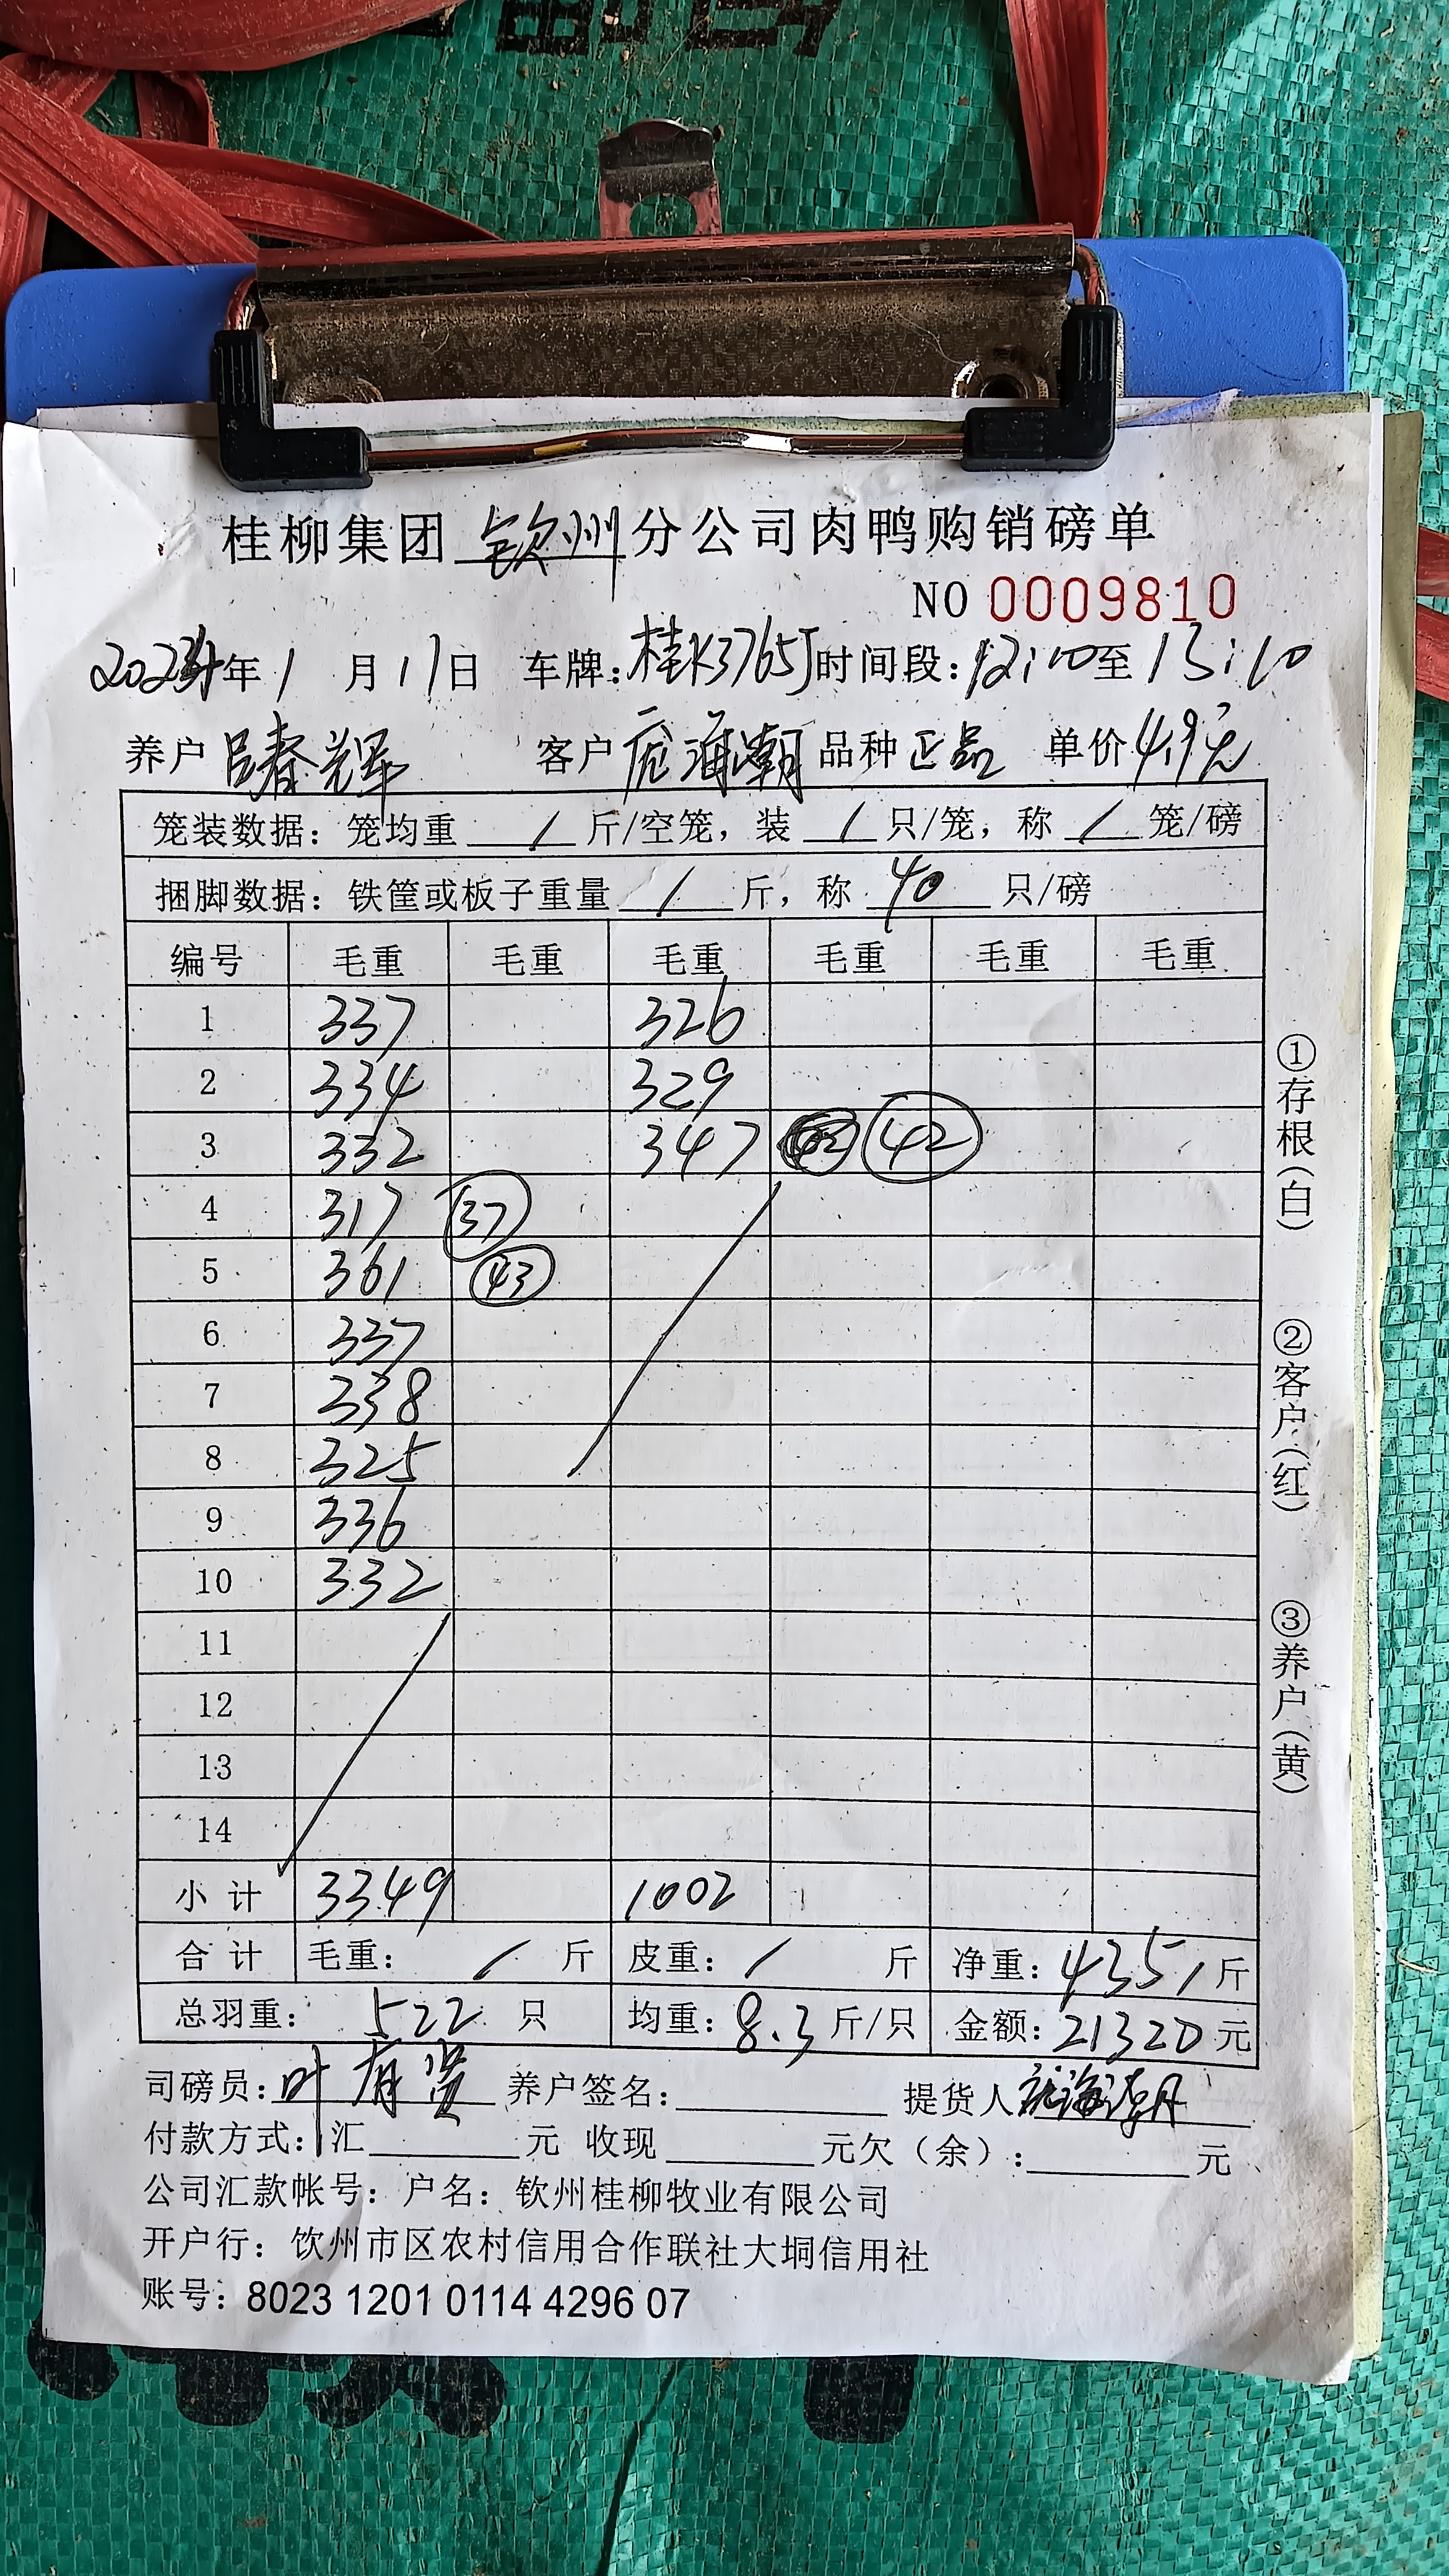 桂柳集团 钦州 分公司肉鸭购销磅单
NO 0009810
年 1 月 11 日 车牌: 桂K3765J 时间段: 12:10 至 13:10
养户 吕春辉 客户 庞海潮 品种 正品 单价 4.9元
笼装数据: 笼均重 / 斤/空笼, 装 / 只/笼, 称 / 笼/磅
捆脚数据: 铁筐或板子重量 / 斤, 称 40 只/磅
编号 毛重 毛重 毛重 毛重 毛重 毛重
1 337 326
2 334 329
3 332 347 42
4 317 37
5 361 43
6 337
7 338
8 325
9 336
10 332
11
12
13
14
小计 3349 1002
合计 毛重: / 斤 皮重: / 斤 净重: 4351 斤
总羽重: 522 只 均重: 8.3 斤/只 金额: 21320 元
司磅员: 叶有贤 养户签名: 提货人 庞海潮
付款方式: 汇 元 收现 元欠(余): 元
公司汇款帐号: 户名: 钦州桂柳牧业有限公司
开户行: 饮州市区农村信用合作联社大垌信用社
账号: 8023 1201 0114 4296 07
①存根(白)
②客户(红)
③养户(黄)